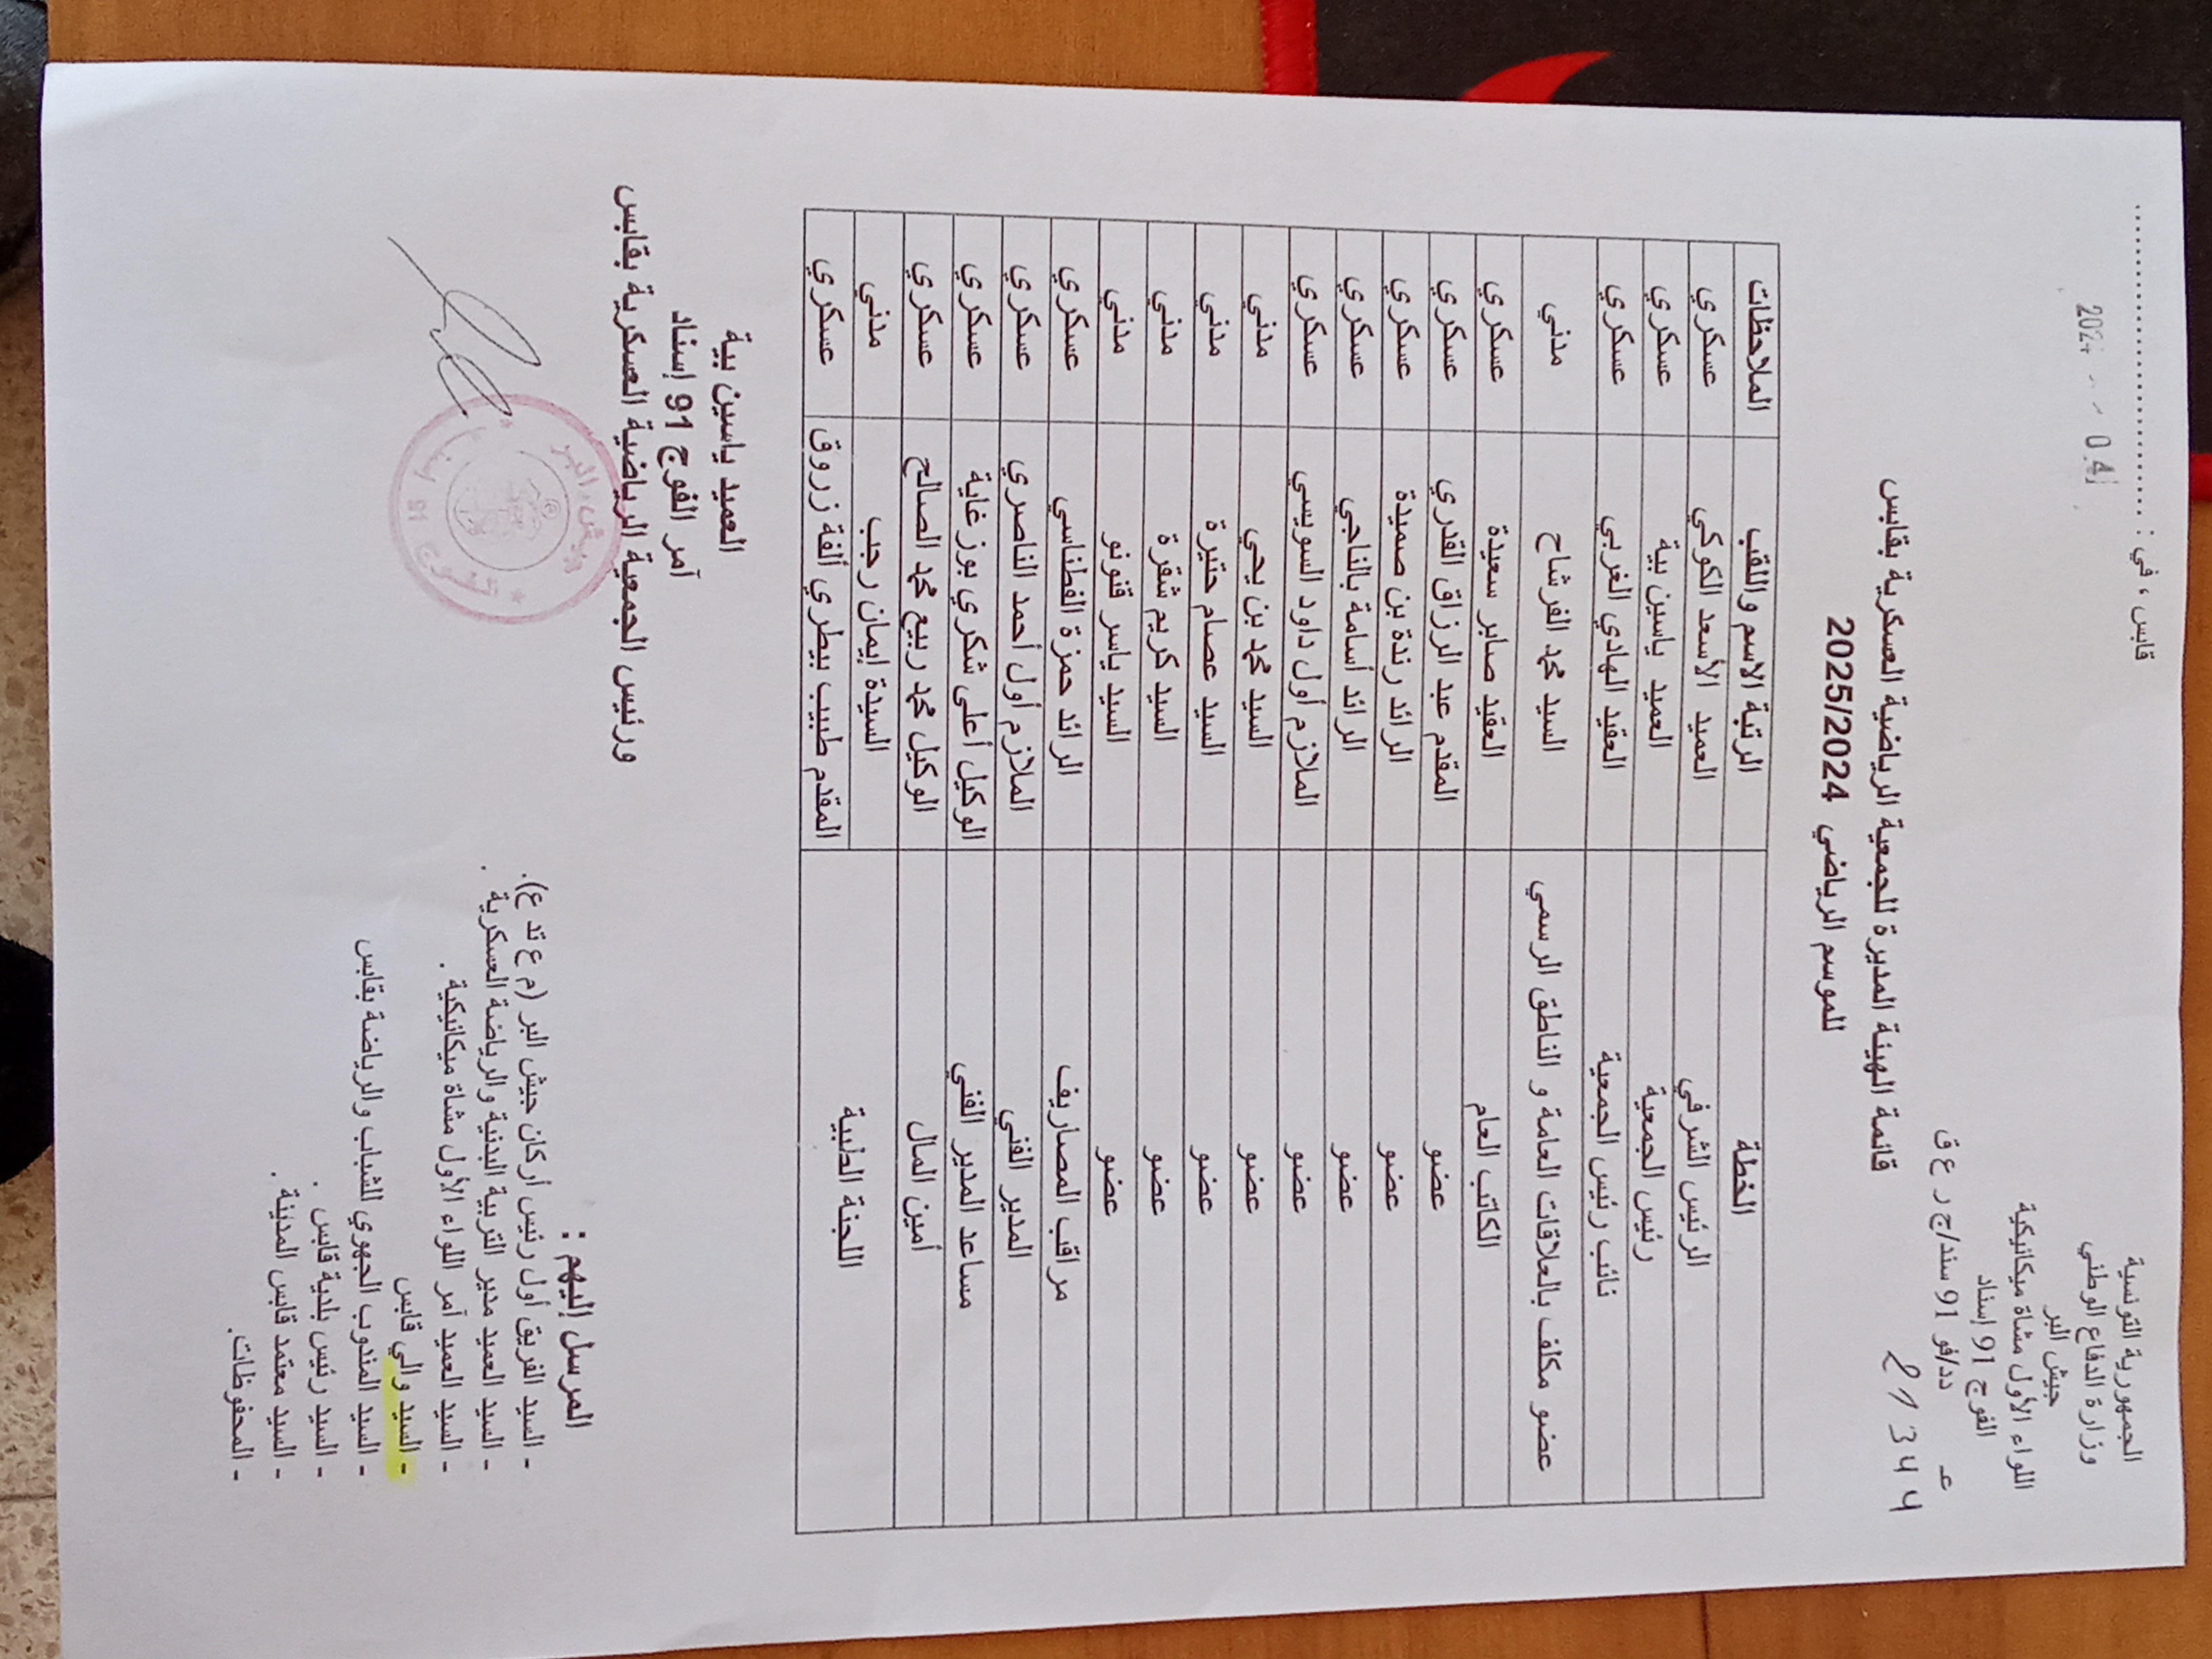 الجمهورية التونسية
وزارة الدفاع الوطني
جيش البر
اللواء الأول مشاة ميكانيكية
الفوج 91 إسناد
عـ دد/فو 91 سند/ج ر ع ق
قابس ، في : ........................
قائمة الهيئة المديرة للجمعية الرياضية العسكرية بقابس
للموسم الرياضي 2025/2024
الخطة الرتبة الاسم واللقب الملاحظات
الرئيس الشرفي العميد الأسعد الكوكي عسكري
رئيس الجمعية العميد ياسين بية عسكري
نائب رئيس الجمعية العقيد الهادي الغربي عسكري
عضو مكلف بالعلاقات العامة و الناطق الرسمي السيد محمد الفرشاح مدني
الكاتب العام العقيد صابر سعيدة عسكري
عضو المقدم عبد الرزاق القدري عسكري
عضو الرائد رندة بن صميدة عسكري
عضو الرائد أسامة بالناجي عسكري
عضو الملازم أول داود السويسي عسكري
عضو السيد محمد بن يحي مدني
عضو السيد عصام حتيرة مدني
عضو السيد كريم شقرة مدني
عضو السيد ياسر قنونو مدني
مراقب المصاريف الرائد حمزة الفطناسي عسكري
المدير الفني الملازم أول أحمد الناصري عسكري
مساعد المدير الفني الوكيل أعلى شكري بوزغاية عسكري
أمين المال الوكيل محمد ربيع محمد الصالح عسكري
اللجنة الطبية السيدة إيمان رجب مدني
المقدم طبيب بيطري ألفة زروق عسكري
العميد ياسين بية
آمر الفوج 91 إسناد
ورئيس الجمعية الرياضية العسكرية بقابس
جيش البر
الفوج 91
المرسل إليهم :
- السيد الفريق أول رئيس أركان جيش البر (م ع تد ع).
- السيد العميد مدير التربية البدنية والرياضة العسكرية .
- السيد العميد آمر اللواء الأول مشاة ميكانيكية .
- السيد والي قابس
- السيد المندوب الجهوي للشباب والرياضة بقابس
- السيد رئيس بلدية قابس .
- السيد معتمد قابس المدينة .
- المحفوظات.